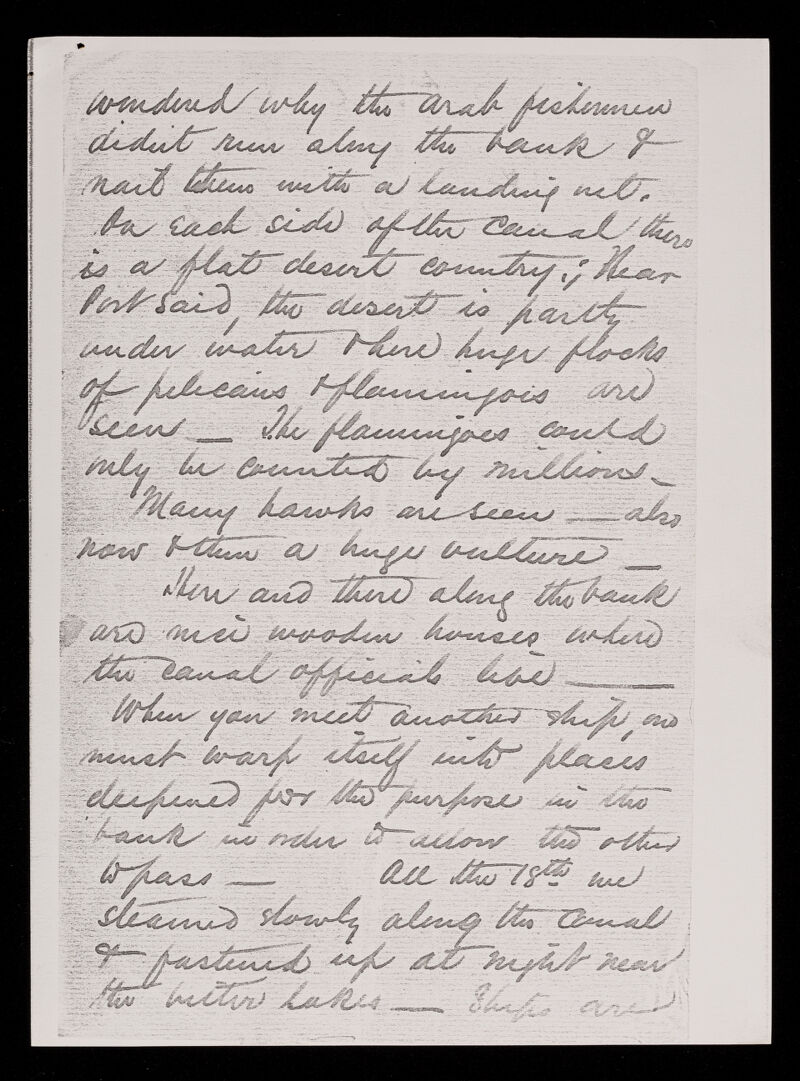 wondered why the arab fishermen
didn't run along the bank &
nail them with a landing net.
On each side of the canal there
is a flat desert country.; Near
Port Said, the desert is partly
under water & here huge flocks
of pelicans & flamingois are
seen — The flamingoes could
only be counted by millions —
Many hawks are seen — also
now & then a huge vulture —
Here and there along the bank
are nice wooden houses where
the canal officials live —
When you meet another ship, one
must warp itself into places
deepened for the purpose in the
bank in order to allow the other
to pass — All the 18th we
steamed slowly along the canal
& fastened up at night near
the bitter lakes — Ships are